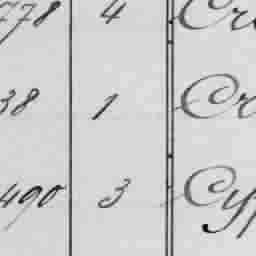 778 4 Cr
38 1 Cr
490 3 Cyp